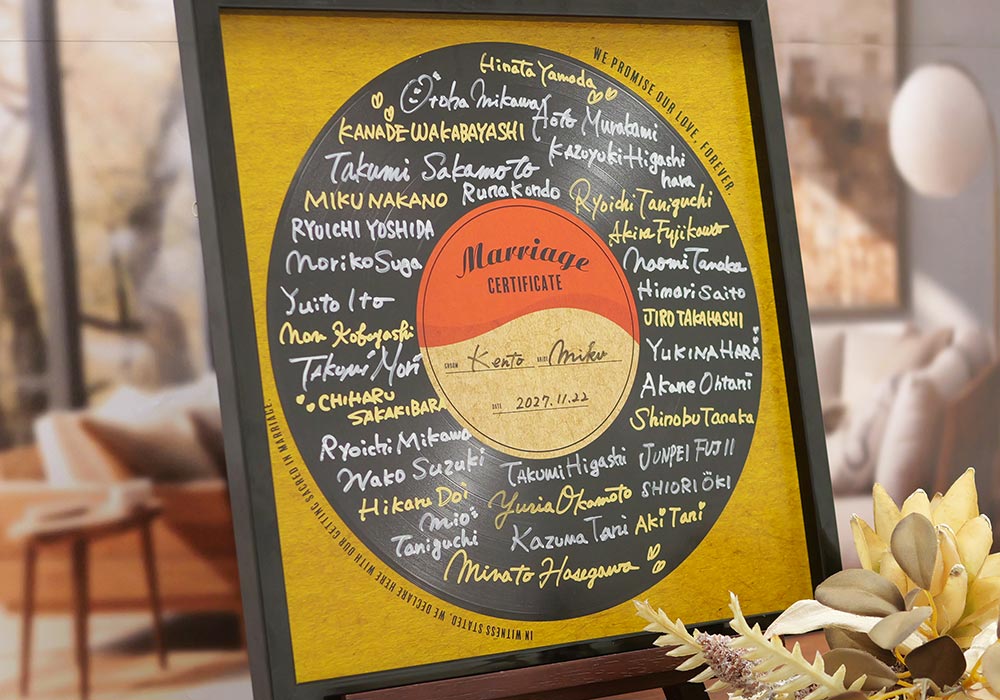 WE PROMISE OUR LOVE, FOREVER.
Hinata Yamada
Otoha Mikawa
Aoto Murakami
KANADE WAKABAYASHI
KAZUYUKI Higashi
hara
Takumi Sakamoto
Runa Kondo
MIKU NAKANO
Ryoichi Taniguchi
RYUICHI YOSHIDA
Akira Fujikawa
Noriko Suga
Naomi Tanaka
Yuito Ito
Himari Saito
Non Kobayashi
JIRO TAKAHASHI
Takumi Mori
YUKINA HARA
CHIHARU
SAKAKIBARA
Akane Ohtani
Shinobu Tanaka
Marriage
CERTIFICATE
GROOM Kento BRIDE Miku
DATE 2027.11.22
Ryoichi Mikawa
JUNPEI FUJII
Wako Suzuki
TAKUMI Higashi
SHIORI ŌKI
Hikaru Doi
Yuria Okamoto
Mio
Taniguchi
Kazuma Tani
Aki Tani
Minato Hasegawa
IN WITNESS STATED, WE DECLARE HERE WITH OUR GETTING SACRED IN MARRIAGE